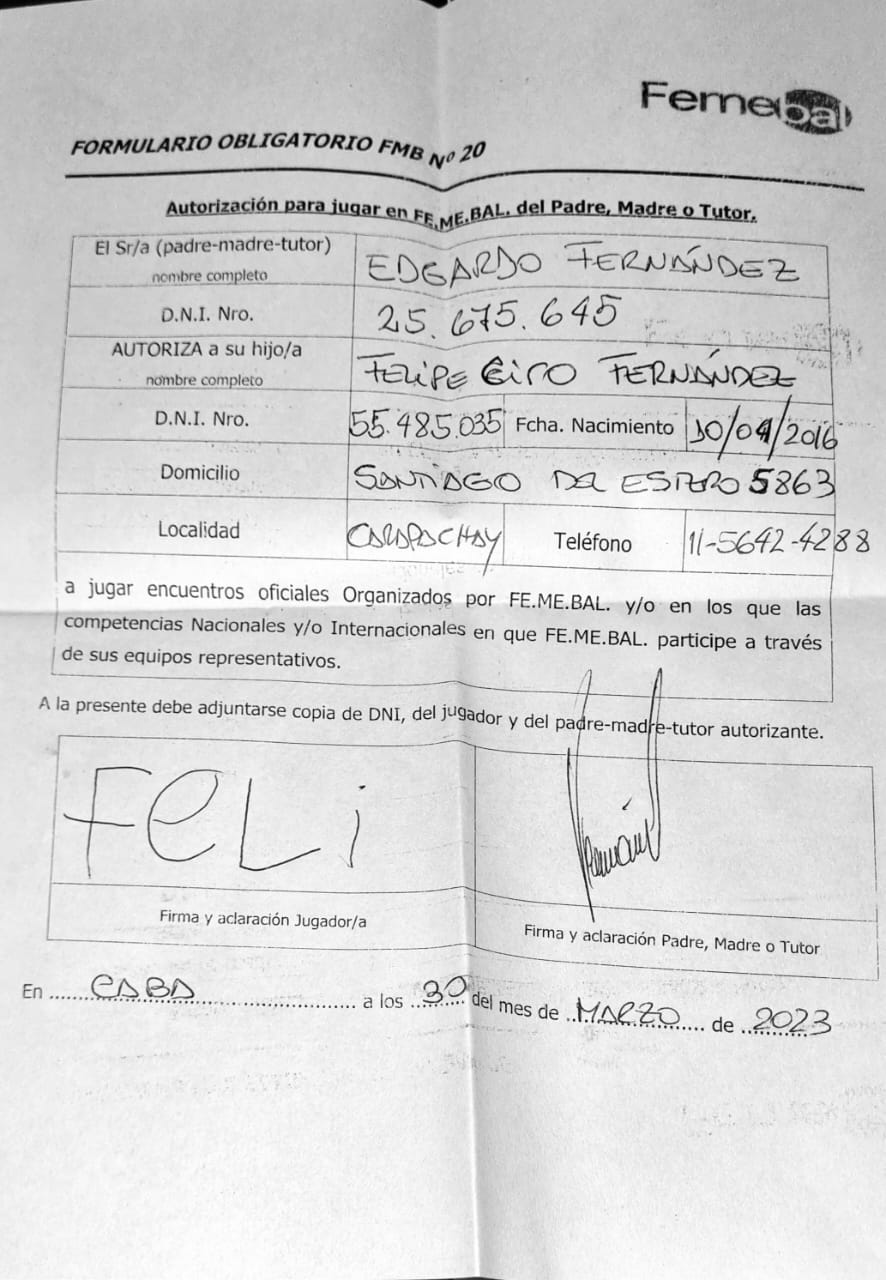 Femebal
FORMULARIO OBLIGATORIO FMB Nº 20
Autorización para jugar en FE.ME.BAL. del Padre, Madre o Tutor.
El Sr/a (padre-madre-tutor)
nombre completo
EDGARDO FERNÁNDEZ
D.N.I. Nro.
25.675.645
AUTORIZA a su hijo/a
nombre completo
FELIPE CIRO FERNÁNDEZ
D.N.I. Nro. 55.485.035 Fcha. Nacimiento 30/04/2016
Domicilio SANTIAGO DEL ESTERO 5863
Localidad CARAPACHAY Teléfono 11-5642-4288
a jugar encuentros oficiales Organizados por FE.ME.BAL. y/o en los que las
competencias Nacionales y/o Internacionales en que FE.ME.BAL. participe a través
de sus equipos representativos.
A la presente debe adjuntarse copia de DNI, del jugador y del padre-madre-tutor autorizante.
FELi
Firma y aclaración Jugador/a
Firma y aclaración Padre, Madre o Tutor
En CABA a los 30 del mes de MARZO de 2023